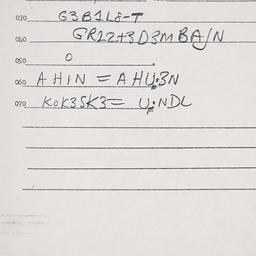 030 G3B1L8-T
040 GR12+3D3MBAJN
050 0 .
060 AHIN = AHU:3N
070 KOK3SK3= U:NDL